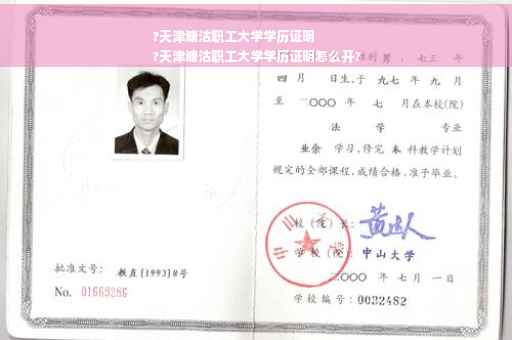 ?天津塘沽职工大学学历证明
?天津塘沽职工大学学历证明怎么开?
男，七三 年
四 月 日生,于 九七 年 九 月
至 二〇〇〇 年 七 月在本校(院)
法 学 专业
业余 学习,修完 本 科教学计划
规定的全部课程,成绩合格,准予毕业。
校(院)长:
学校(院): 中山大学
二〇〇〇 年 七 月 一 日
学校编号: 0032482
批准文号: 教直[1993]8号
No. 01669286